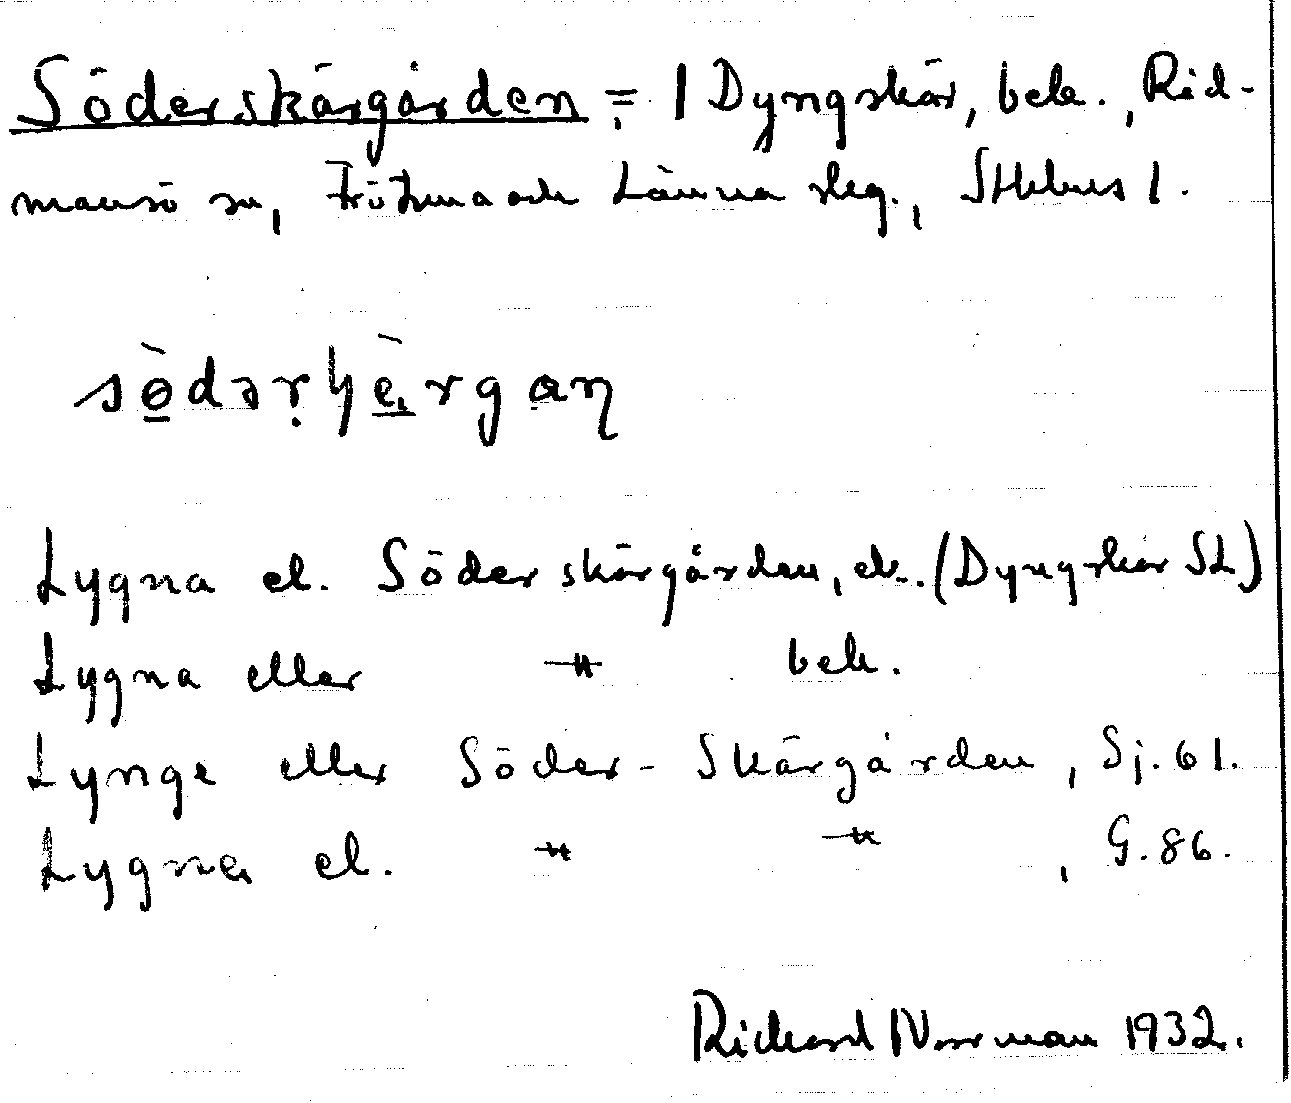 Söderskärgården = 1 Dyngskär, bek., Rid-
mansö sn, Frötuna och Länna skg., Sthlms l.
södərɧèrgaɳ
Lygna el. Söderskärgården, ek. (Dyngskär SL)
Lygna eller –"– bek.
Lynge eller Söder-Skärgården, Sj. 61.
Lygna el. –"– –"–, G. 86.
Rickard Norrman 1932.